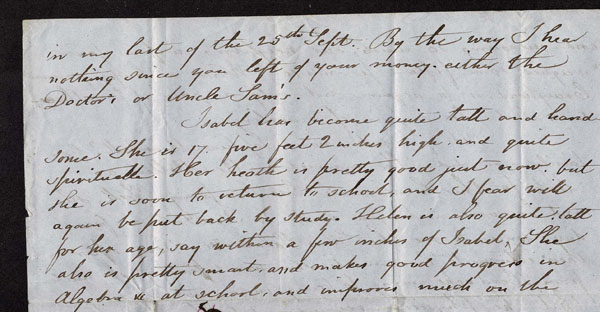 in my last of the 25th Sept. By the way I hear
nothing since you left of your money. either the
Doctor's or Uncle Sam's.
Isabel has become quite tall and hand
some. She is 17. five feet 2 inches high. and quite
spirituelle. Her heath is pretty good just now. but
she is soon to return to school, and I fear will
again be put back by study. Helen is also quite tall
for her age, say within a few inches of Isabel. She
also is pretty smart, and makes good progress in
Algebra &c at school, and improves much on the